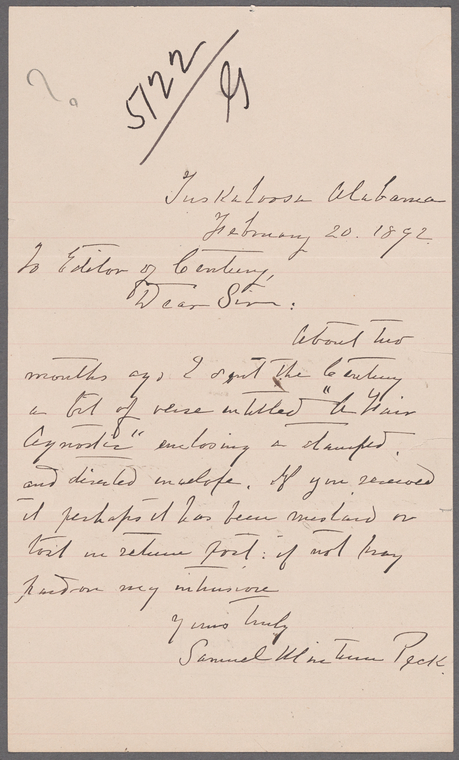 ?
5122
Tuskaloosa Alabama
February 20. 1892
To Editor of Century,
Dear Sir:
About two
months ago I sent the Century
a bit of verse entitled "A Fair
Agnostic" enclosing a stamped,
and directed envelope. If you received
it perhaps it has been mislaid or
lost in return post: if not pray
pardon my intrusion
Yours truly
Samuel Minturn Peck.